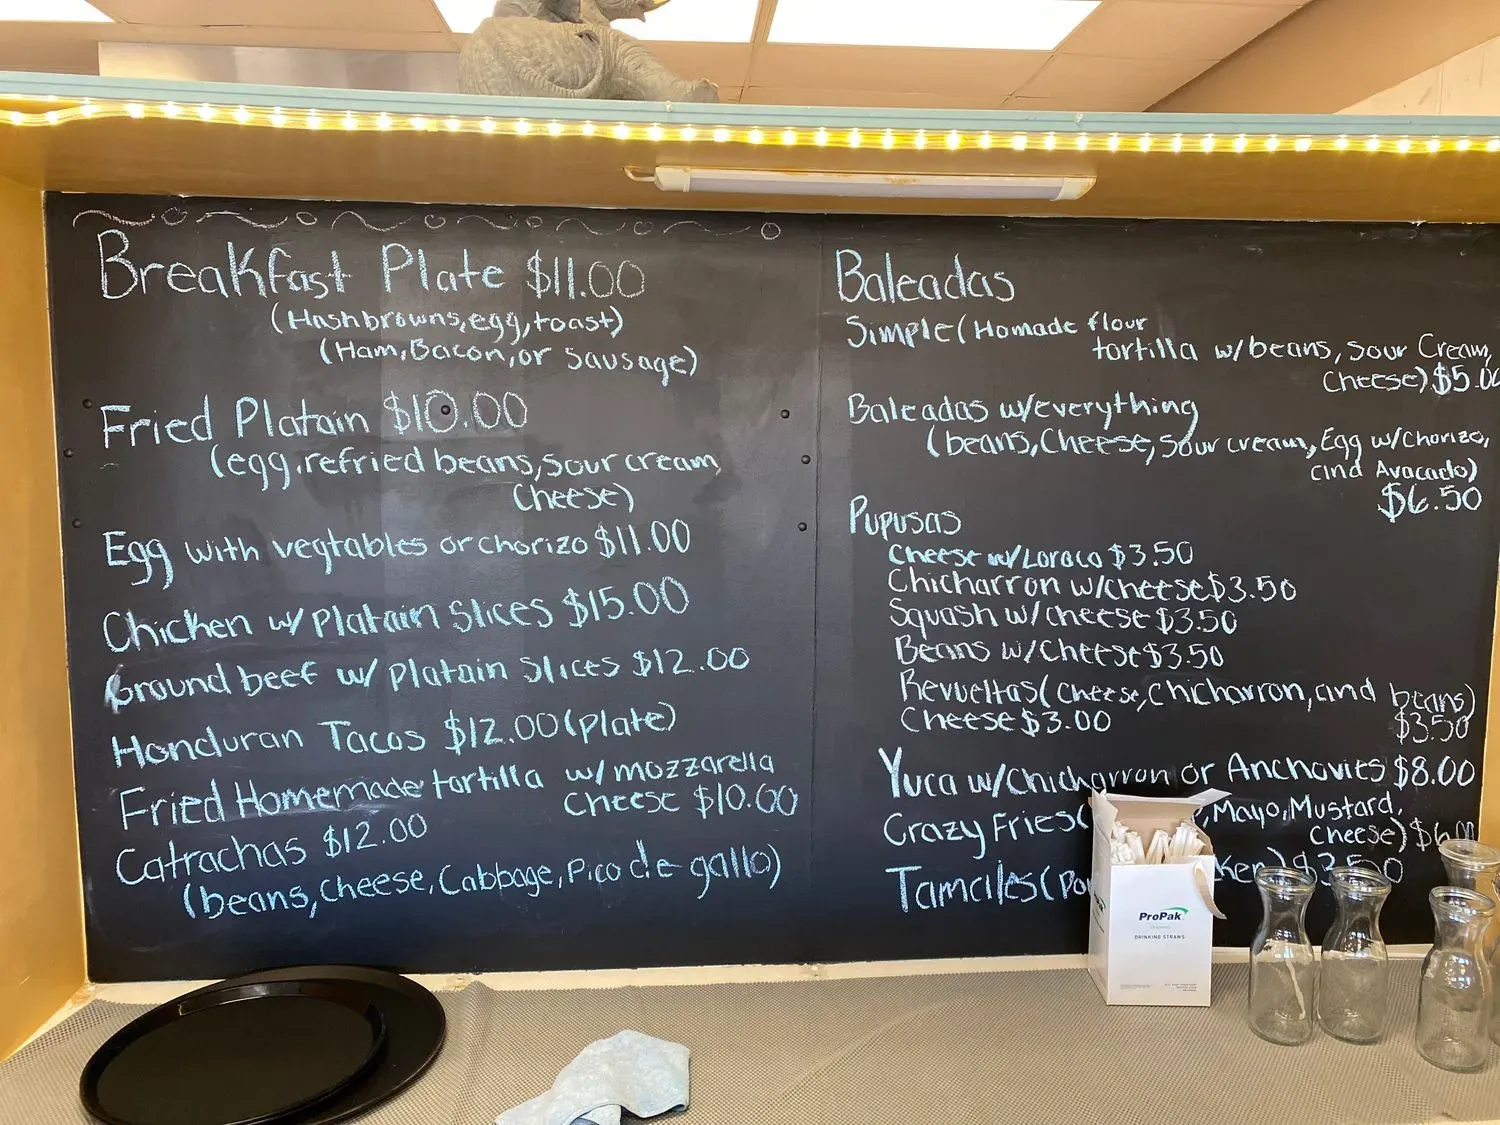 Breakfast Plate $11.00
(Hashbrowns, egg, toast)
(Ham, Bacon, or Sausage)
Fried Platain $10.00
(egg, refried beans, sour cream,
Cheese)
Egg with vegtables or chorizo $11.00
Chicken w/ Platain Slices $15.00
Ground beef w/ Platain Slices $12.00
Honduran Tacos $12.00 (plate)
Fried Homemade tortilla w/ mozzarella
Cheese $10.00
Catrachas $12.00
(beans, Cheese, Cabbage, Pico de gallo)
Baleadas
Simple (Homade flour
tortilla w/ beans, Sour Cream,
Cheese) $5.00
Baleadas w/everything
(beans, Cheese, Sour cream, Egg w/Chorizo,
and Avacado)
$6.50
Pupusas
Cheese w/Loroco $3.50
Chicharron w/cheese $3.50
Squash w/cheese $3.50
Beans w/Cheese $3.50
Revueltas (cheese, chicharron, and beans)
$3.50
Cheese $3.00
Yuca w/Chicharron or Anchovies $8.00
Crazy Fries ( , Mayo, Mustard,
Cheese) $6.00
Tamales ( ) $3.50
ProPak
DRINKING STRAWS